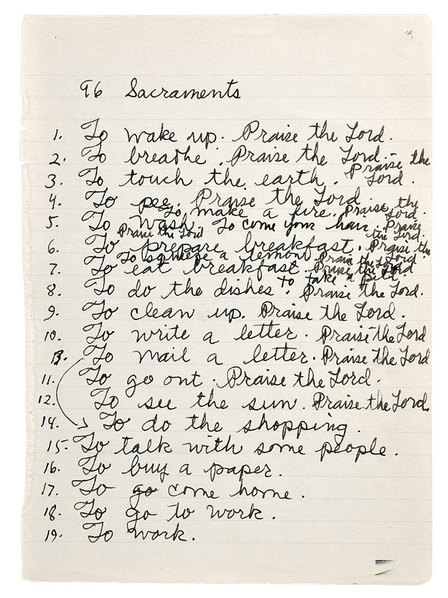 96 Sacraments
1. To wake up. Praise the Lord.
2. To breathe. Praise the Lord.
3. To touch the earth. Praise the Lord.
4. To pee. Praise the Lord.
To make a fire. Praise the Lord.
5. To wash. To comb your hair. Praise the Lord.
Praise the Lord
6. To prepare breakfast. Praise the
To squeeze a lemon. Praise the Lord
7. To eat breakfast. Praise the Lord
to take a pill
8. To do the dishes. Praise the Lord.
9. To clean up. Praise the Lord.
10. To write a letter. Praise the Lord
13. To mail a letter. Praise the Lord
11. To go out. Praise the Lord.
12. To see the sun. Praise the Lord.
14. To do the shopping.
15. To talk with some people.
16. To buy a paper.
17. To go come home.
18. To go to work.
19. To work.